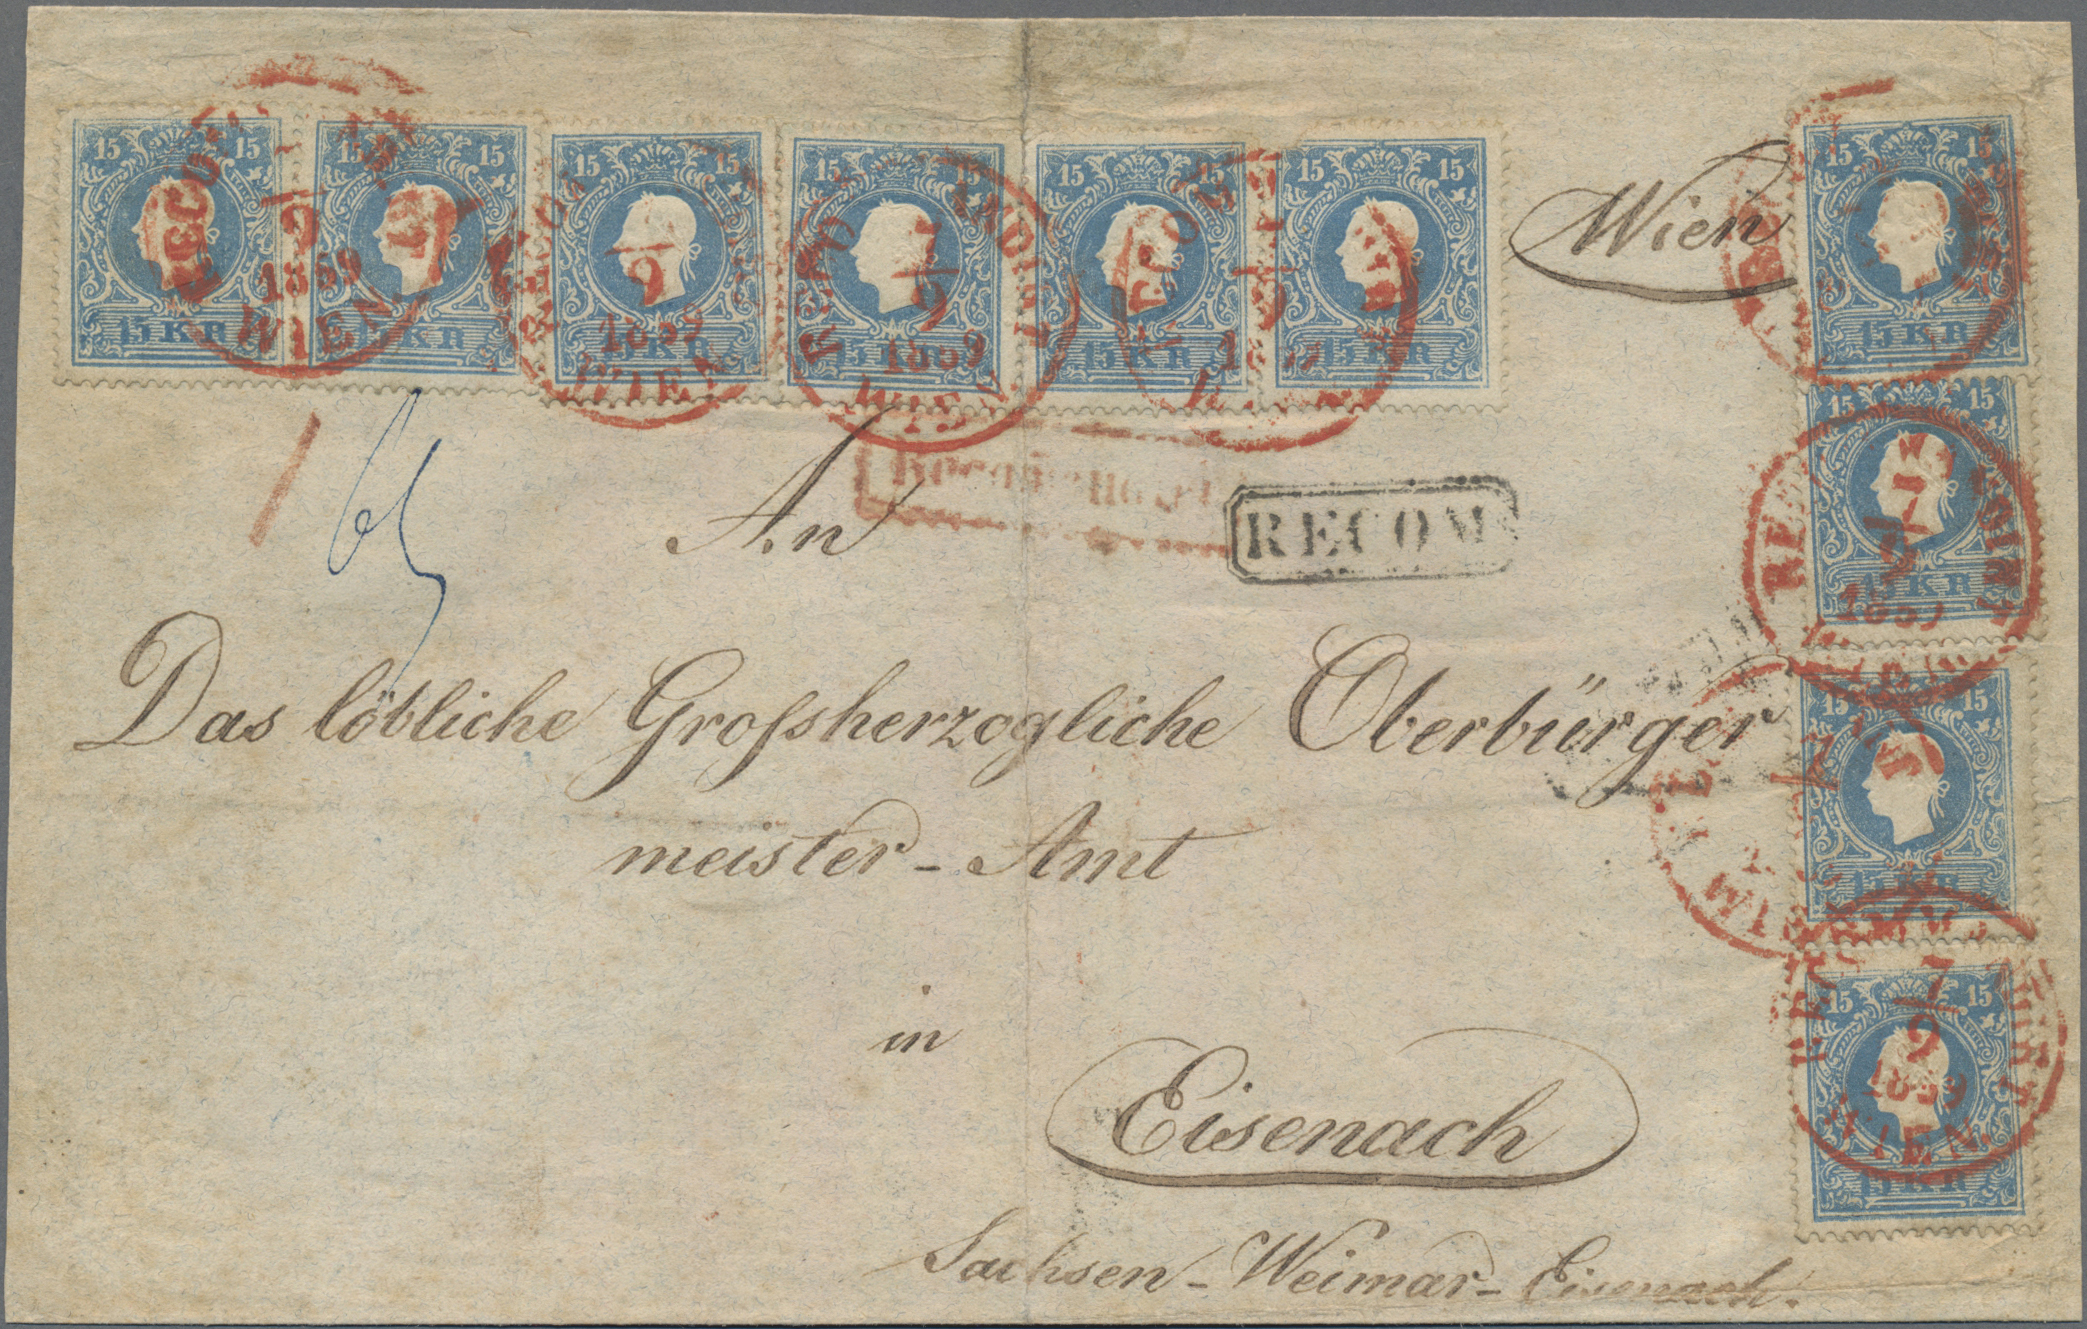 15 15 15 15 15 15 15 15 15 15 15 15
15 KR 15 KR 15 KR 15 KR 15 KR 15 KR
RECOM
1859
WIEN
1859
WIEN
7
9
1859
WIEN
Wien
15 15
15 KR
15 15
7
9
1859
15 KR
15 15
15 KR
15 15
7
9
1859
WIEN
RECOM
An
Das löbliche Großherzogliche Oberbürger
meister-Amt
in
Eisenach
Sachsen-Weimar-Eisenach.